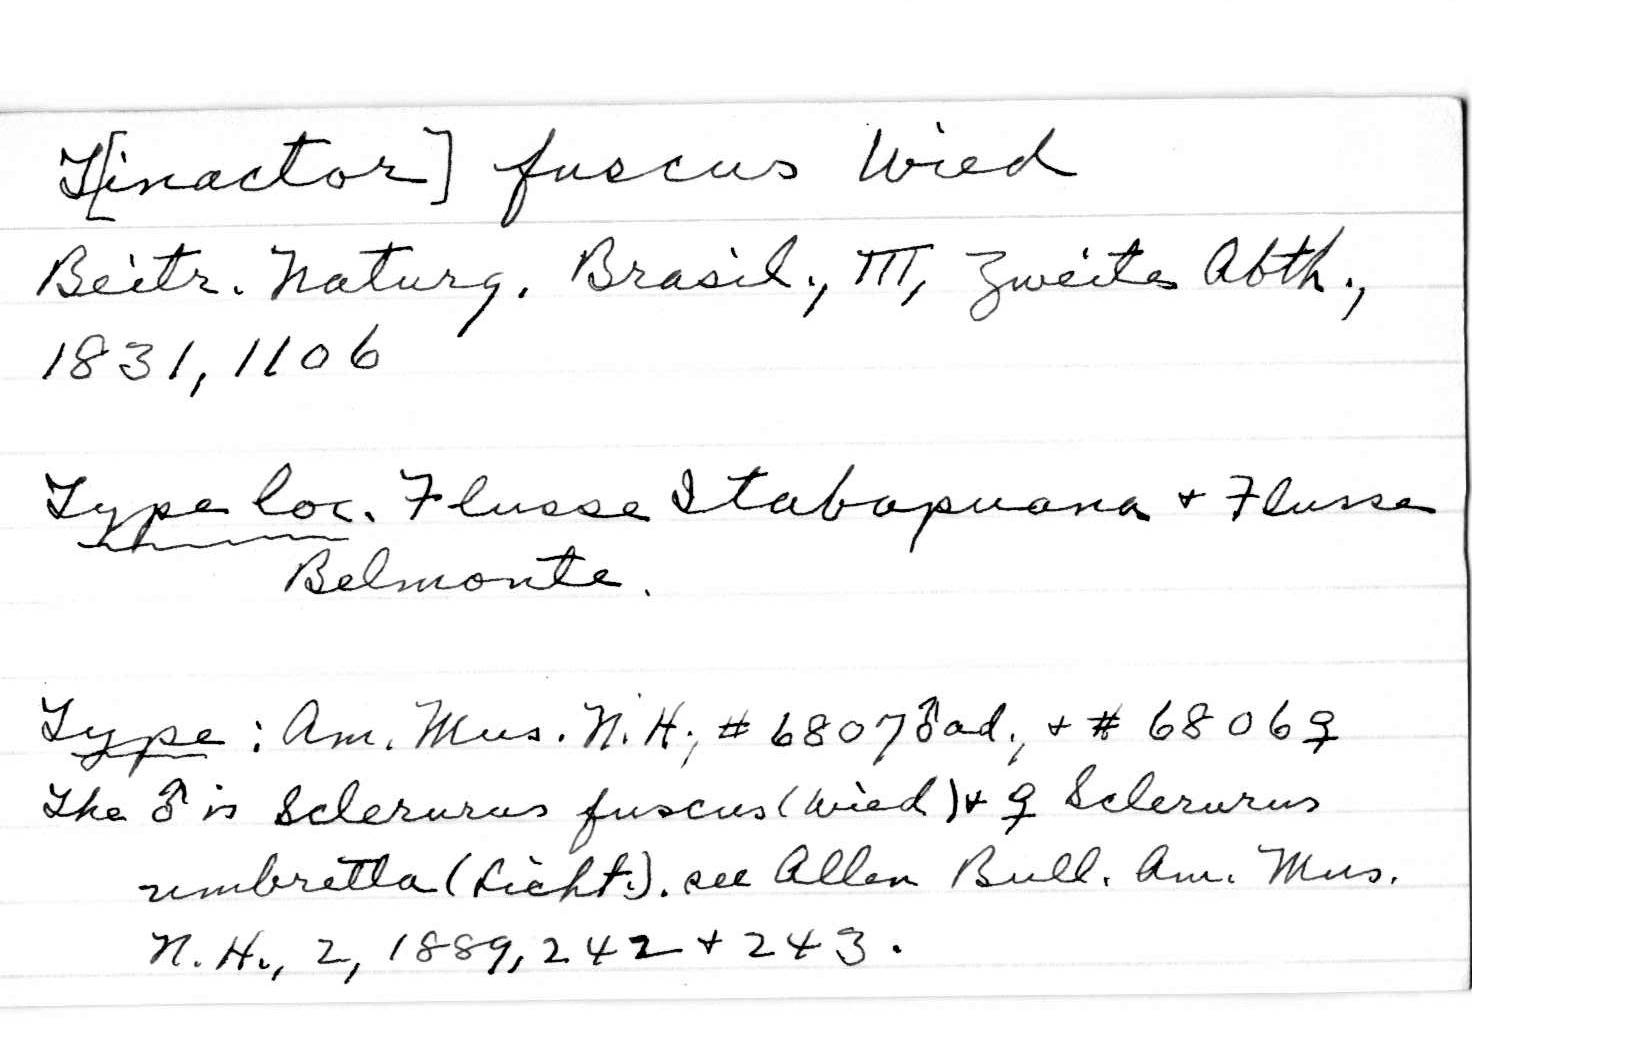 T[inactor] fuscus Wied
Beitr. Naturg. Brasil., III, Zweite Abth.,
1831, 1106
Type loc. Flusse Itabapuana + Flusse
Belmonte.
Type: Am. Mus. N.H., # 6807 ♂ ad., + # 6806 ♀
The ♂ is Sclerurus fuscus (Wied) + ♀ Sclerurus
umbretta (Licht.). see Allen Bull. Am. Mus.
N.H., 2, 1889, 242 + 243.